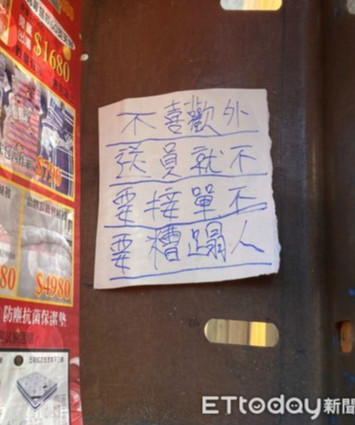 $1680
$4980
80
防塵抗菌保潔墊
不喜歡外
送員就不
要接單不
要糟蹋人
ETtoday新聞